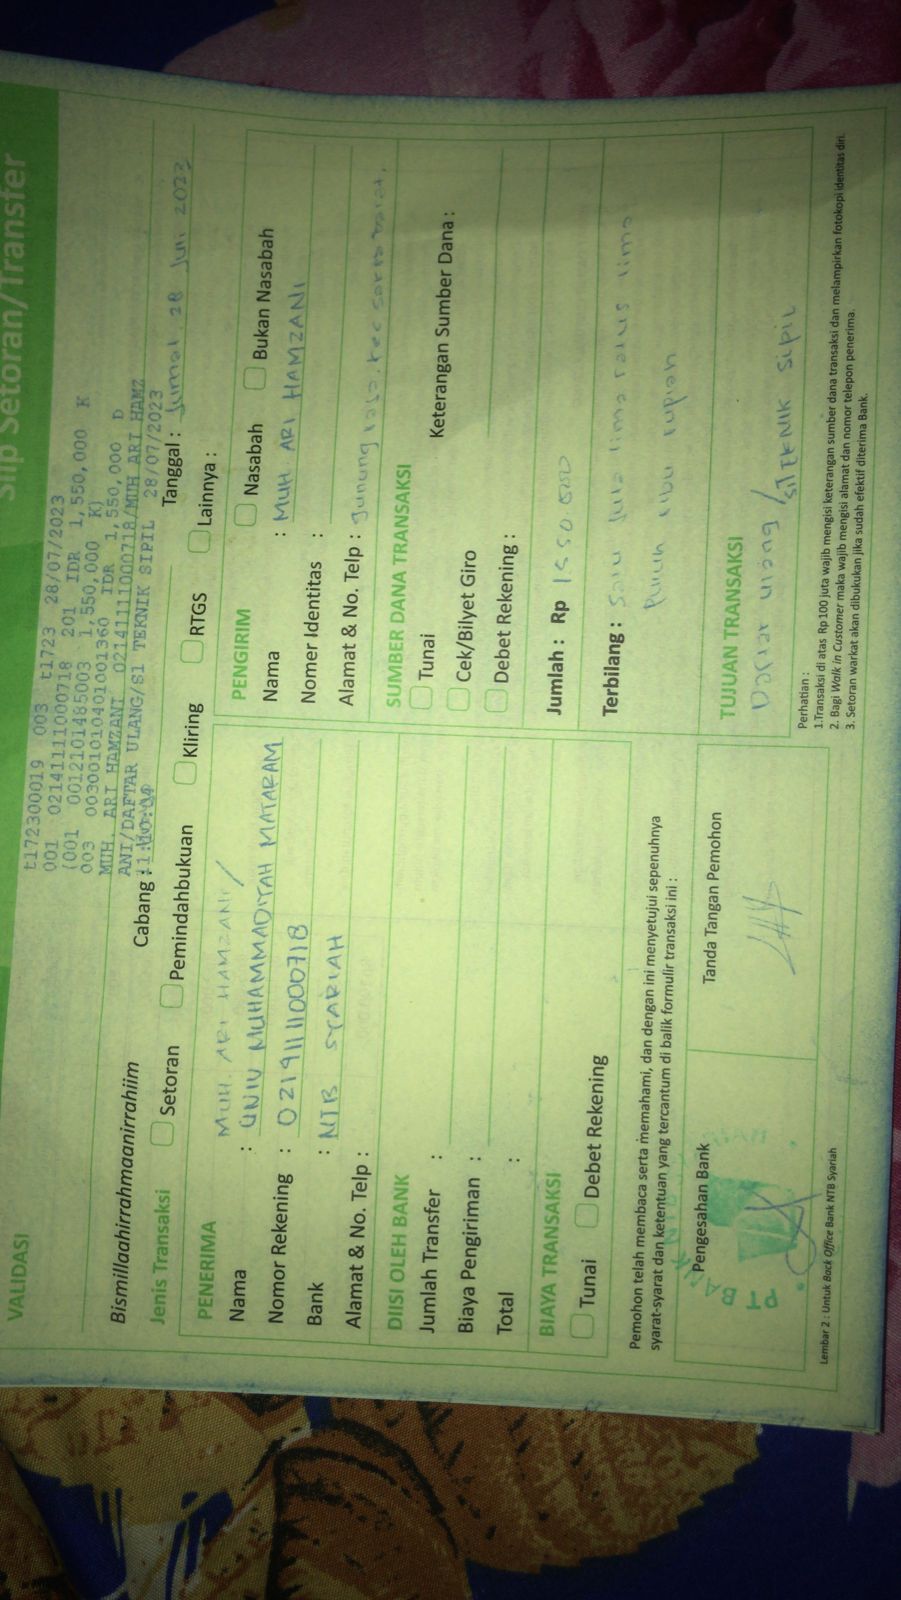 Slip Setoran/Transfer
VALIDASI
t172300019 003 t1723 28/07/2023
001 0214111100718 201 IDR 1,550,000 K
(001 0012101485003 1,550,000 K)
003 0030010401001360 IDR 1,550,000 D
MUH. ARI HAMZANI 0214111100718/MUH ARI HAMZ
ANI/DAFTAR ULANG/S1 TEKNIK SIPIL 28/07/2023
Bismillaahirrahmaanirrahiim
Cabang :
Tanggal : Jumat, 28 Juli 2023
Jenis Transaksi
Setoran
Pemindahbukuan
Kliring
RTGS
Lainnya :
PENERIMA
MUH. ARI HAMZANI /
Nama : UNIV MUHAMMADIYAH MATARAM
Nomor Rekening :
Bank : NTB SYARIAH
Alamat & No. Telp :
PENGIRIM
Nasabah
Bukan Nasabah
Nama : MUH. ARI HAMZANI
Nomer Identitas :
Alamat & No. Telp :
DIISI OLEH BANK
Jumlah Transfer :
Biaya Pengiriman :
Total :
SUMBER DANA TRANSAKSI
Tunai
Keterangan Sumber Dana :
Cek/Bilyet Giro
Debet Rekening :
BIAYA TRANSAKSI
Tunai
Debet Rekening
Jumlah : Rp
Terbilang : Satu juta lima ratus lima
puluh ribu rupiah
Pemohon telah membaca serta memahami, dan dengan ini menyetujui sepenuhnya
syarat-syarat dan ketentuan yang tercantum di balik formulir transaksi ini :
Pengesahan Bank
Tanda Tangan Pemohon
PT BANK
TUJUAN TRANSAKSI
Daftar ulang / S1 TEKNIK SIPIL
Perhatian :
1.Transaksi di atas Rp100 juta wajib mengisi keterangan sumber dana transaksi dan melampirkan fotokopi identitas diri.
2. Bagi Walk in Customer maka wajib mengisi alamat dan nomor telepon penerima.
3. Setoran warkat akan dibukukan jika sudah efektif diterima Bank.
Lembar 2 : Untuk Back Office Bank NTB Syariah